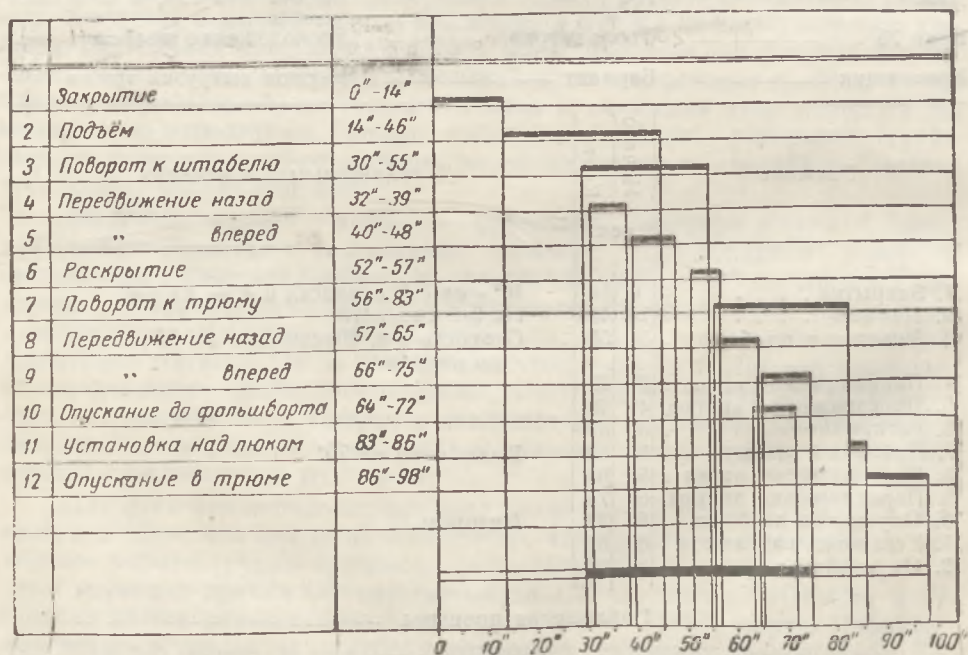 1 Закрытие 0"-14"
2 Подъём 14"-46"
3 Поворот к штабелю 30"-55"
4 Передвижение назад 32"-39"
5 " вперед 40"-48"
6 Раскрытие 52"-57"
7 Поворот к трюму 56"-83"
8 Передвижение назад 57"-65"
9 " вперед 66"-75"
10 Опускание до фальшборта 64"-72"
11 Установка над люком 83"-86"
12 Опускание в трюме 86"-98"
0 10" 20" 30" 40" 50" 60" 70" 80" 90" 100"